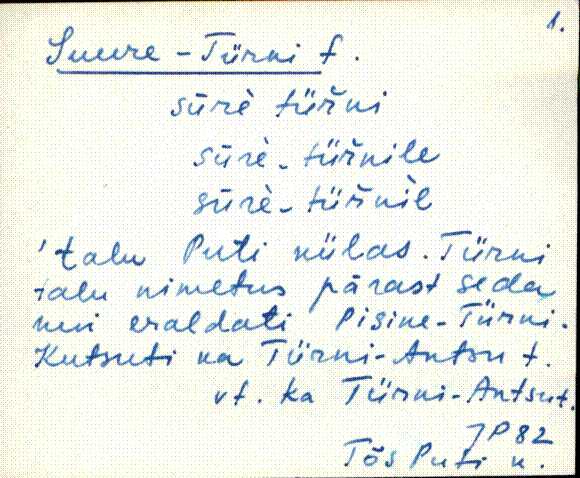 1.
Suure-Türni t.
sūrè tür̆ni
sūrè-tür̆nile
sūrè-tür̆nil̀
'talu Puti külas. Türni
talu nimetus pärast seda
kui eraldati Pisine-Türni.
Kutsuti ka Türni-Antsu t.
vt. ka Türni-Antsu t.
JP 82
Tõs Puti k.